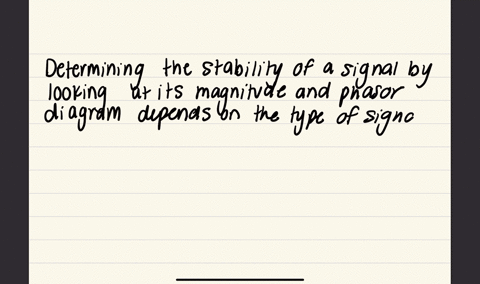 Determining the stability of a signal by
looking at its magnitude and phasor
diagram depends on the type of signa